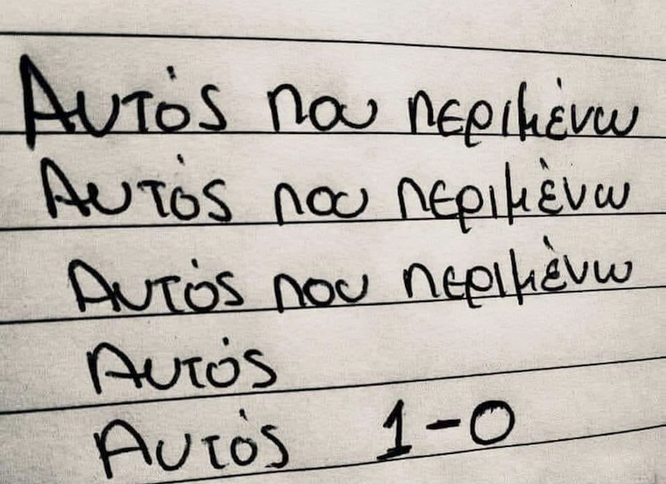 Αυτός που περιμένω
Αυτός που περιμένω
Αυτός που περιμένω
Αυτός
Αυτός 1-0